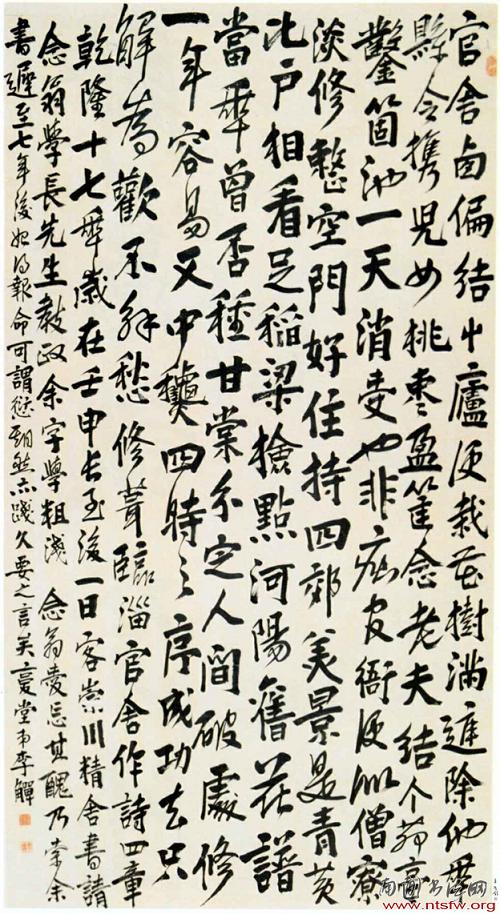 官舍卤偏结艸廬便栽花樹满遲除他年
縣令携兒女桃枣盈筐念老夫结个茆亭
鑿箇池一天消受也非癡官衙便似僧寮
淡修整空門好住持四郊美景是青黄
比户相看足稻粱檢點河陽舊花譜
當年曾否種甘棠分定人間破處修
一年容易又中龝四時之序成功去只
解為歡不解愁修葺臨淄官舍作詩四章
乾隆十七年歲在壬申長至後一日客崇川精舍書請
念翁學長先生教政余字學粗淺念翁愛忘其醜乃索余
書遲至七年後始得報命可謂愆期然亦踐久要之言矣復堂弟李鱓
www.ntsfw.org